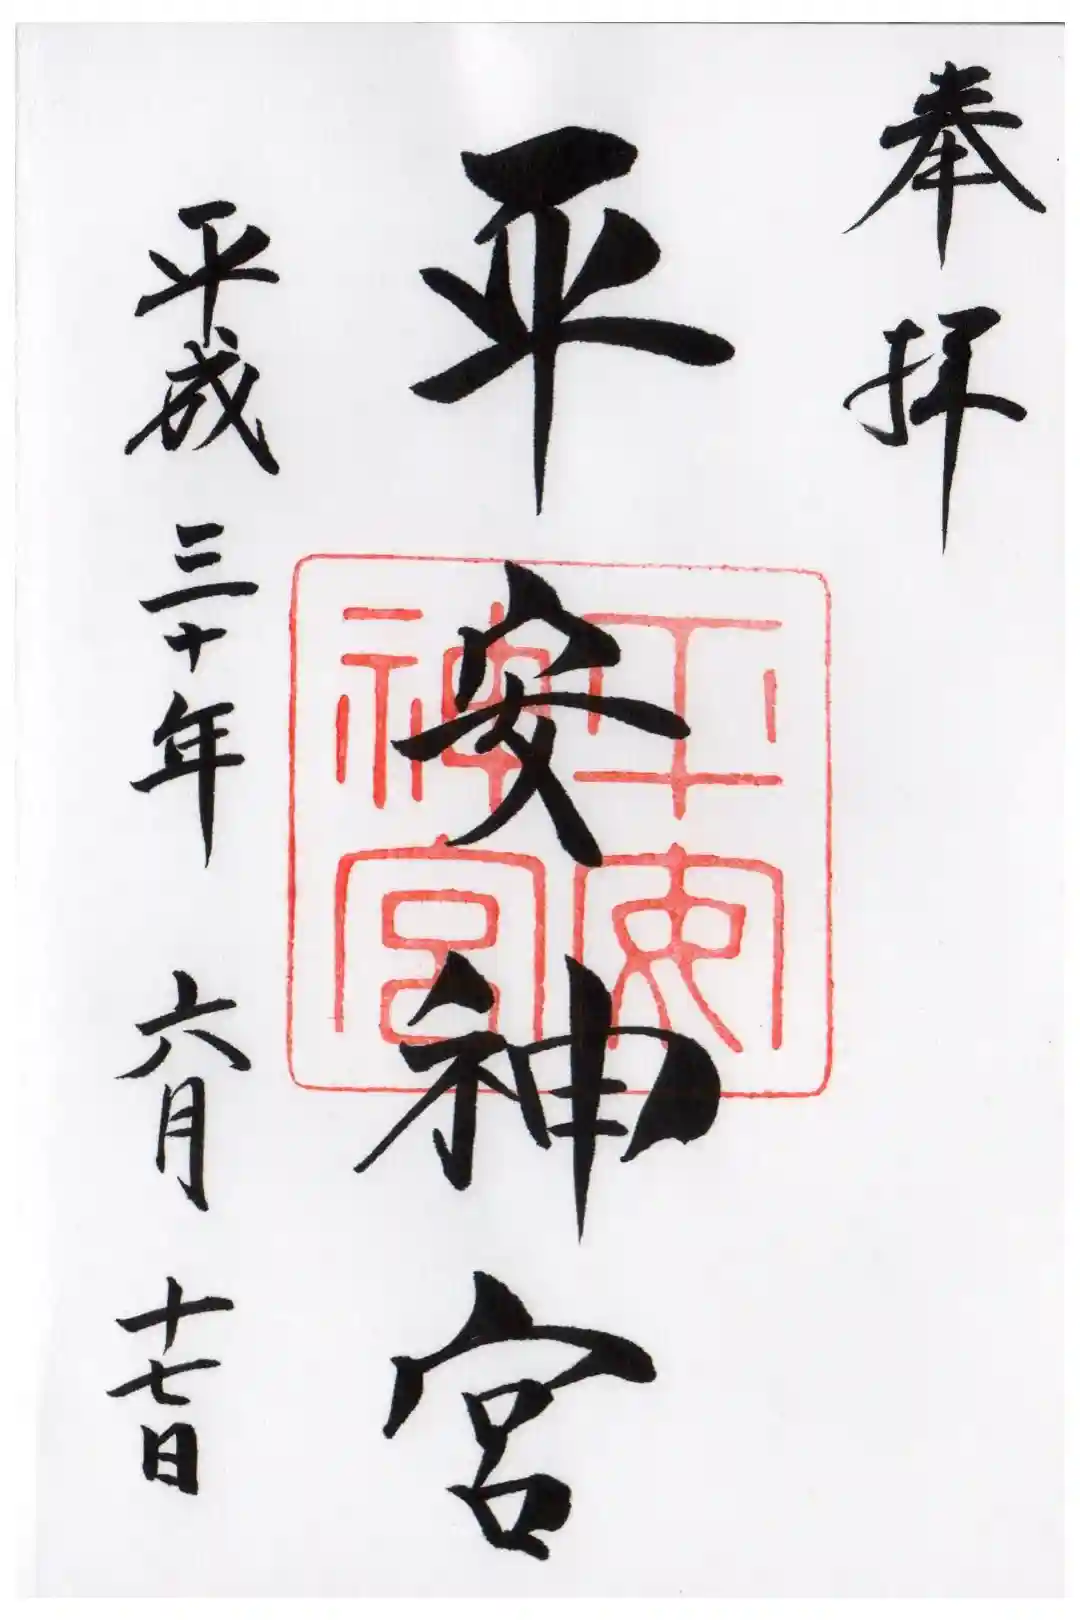 奉拝
平安神宮
平安
神宮
平成三十年六月十七日